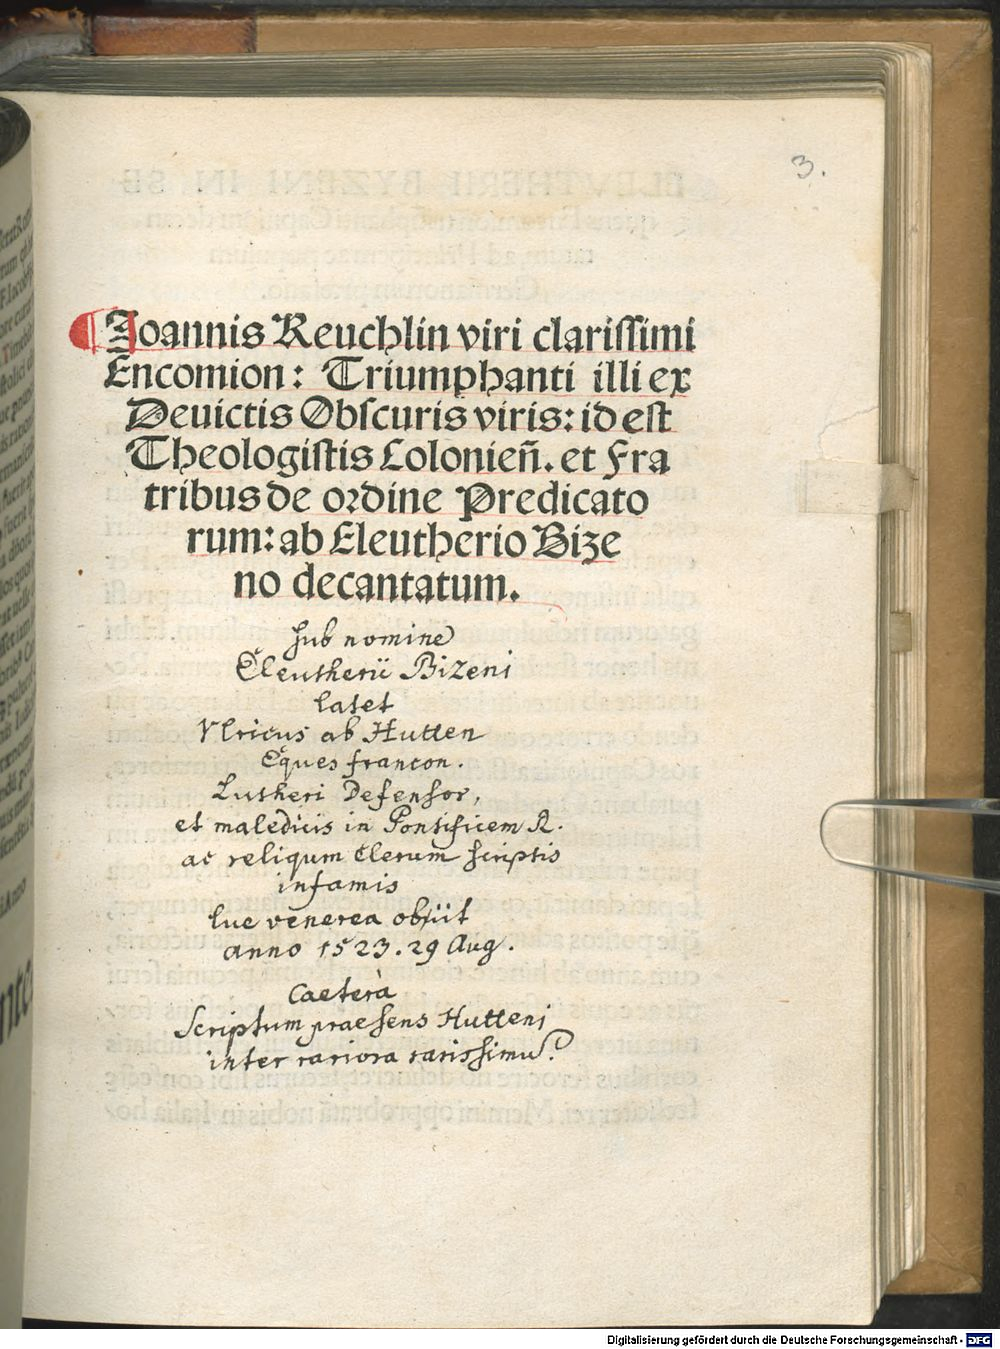 3.
Joannis Reuchlin viri clarissimi
Encomion: Triumphanti illi ex
Deuictis Obscuris viris: id est
Theologistis Colonien̄. et Fra
tribus de ordine Predicato
rum: ab Eleutherio Bize
no decantatum.
sub nomine
Eleutherii Bizeni
latet
Vlricus ab Hutten
Eques francon.
Lutheri Defensor,
et maledicis in Pontificem R.
ac reliqum Clerum scriptis
infamis
lue venerea obiit
anno 1523. 29 Aug.
Caetera
Scriptum praesens Hutteni
inter rariora
Digitalisierung gefördert durch die Deutsche Forschungsgemeinschaft - DFG